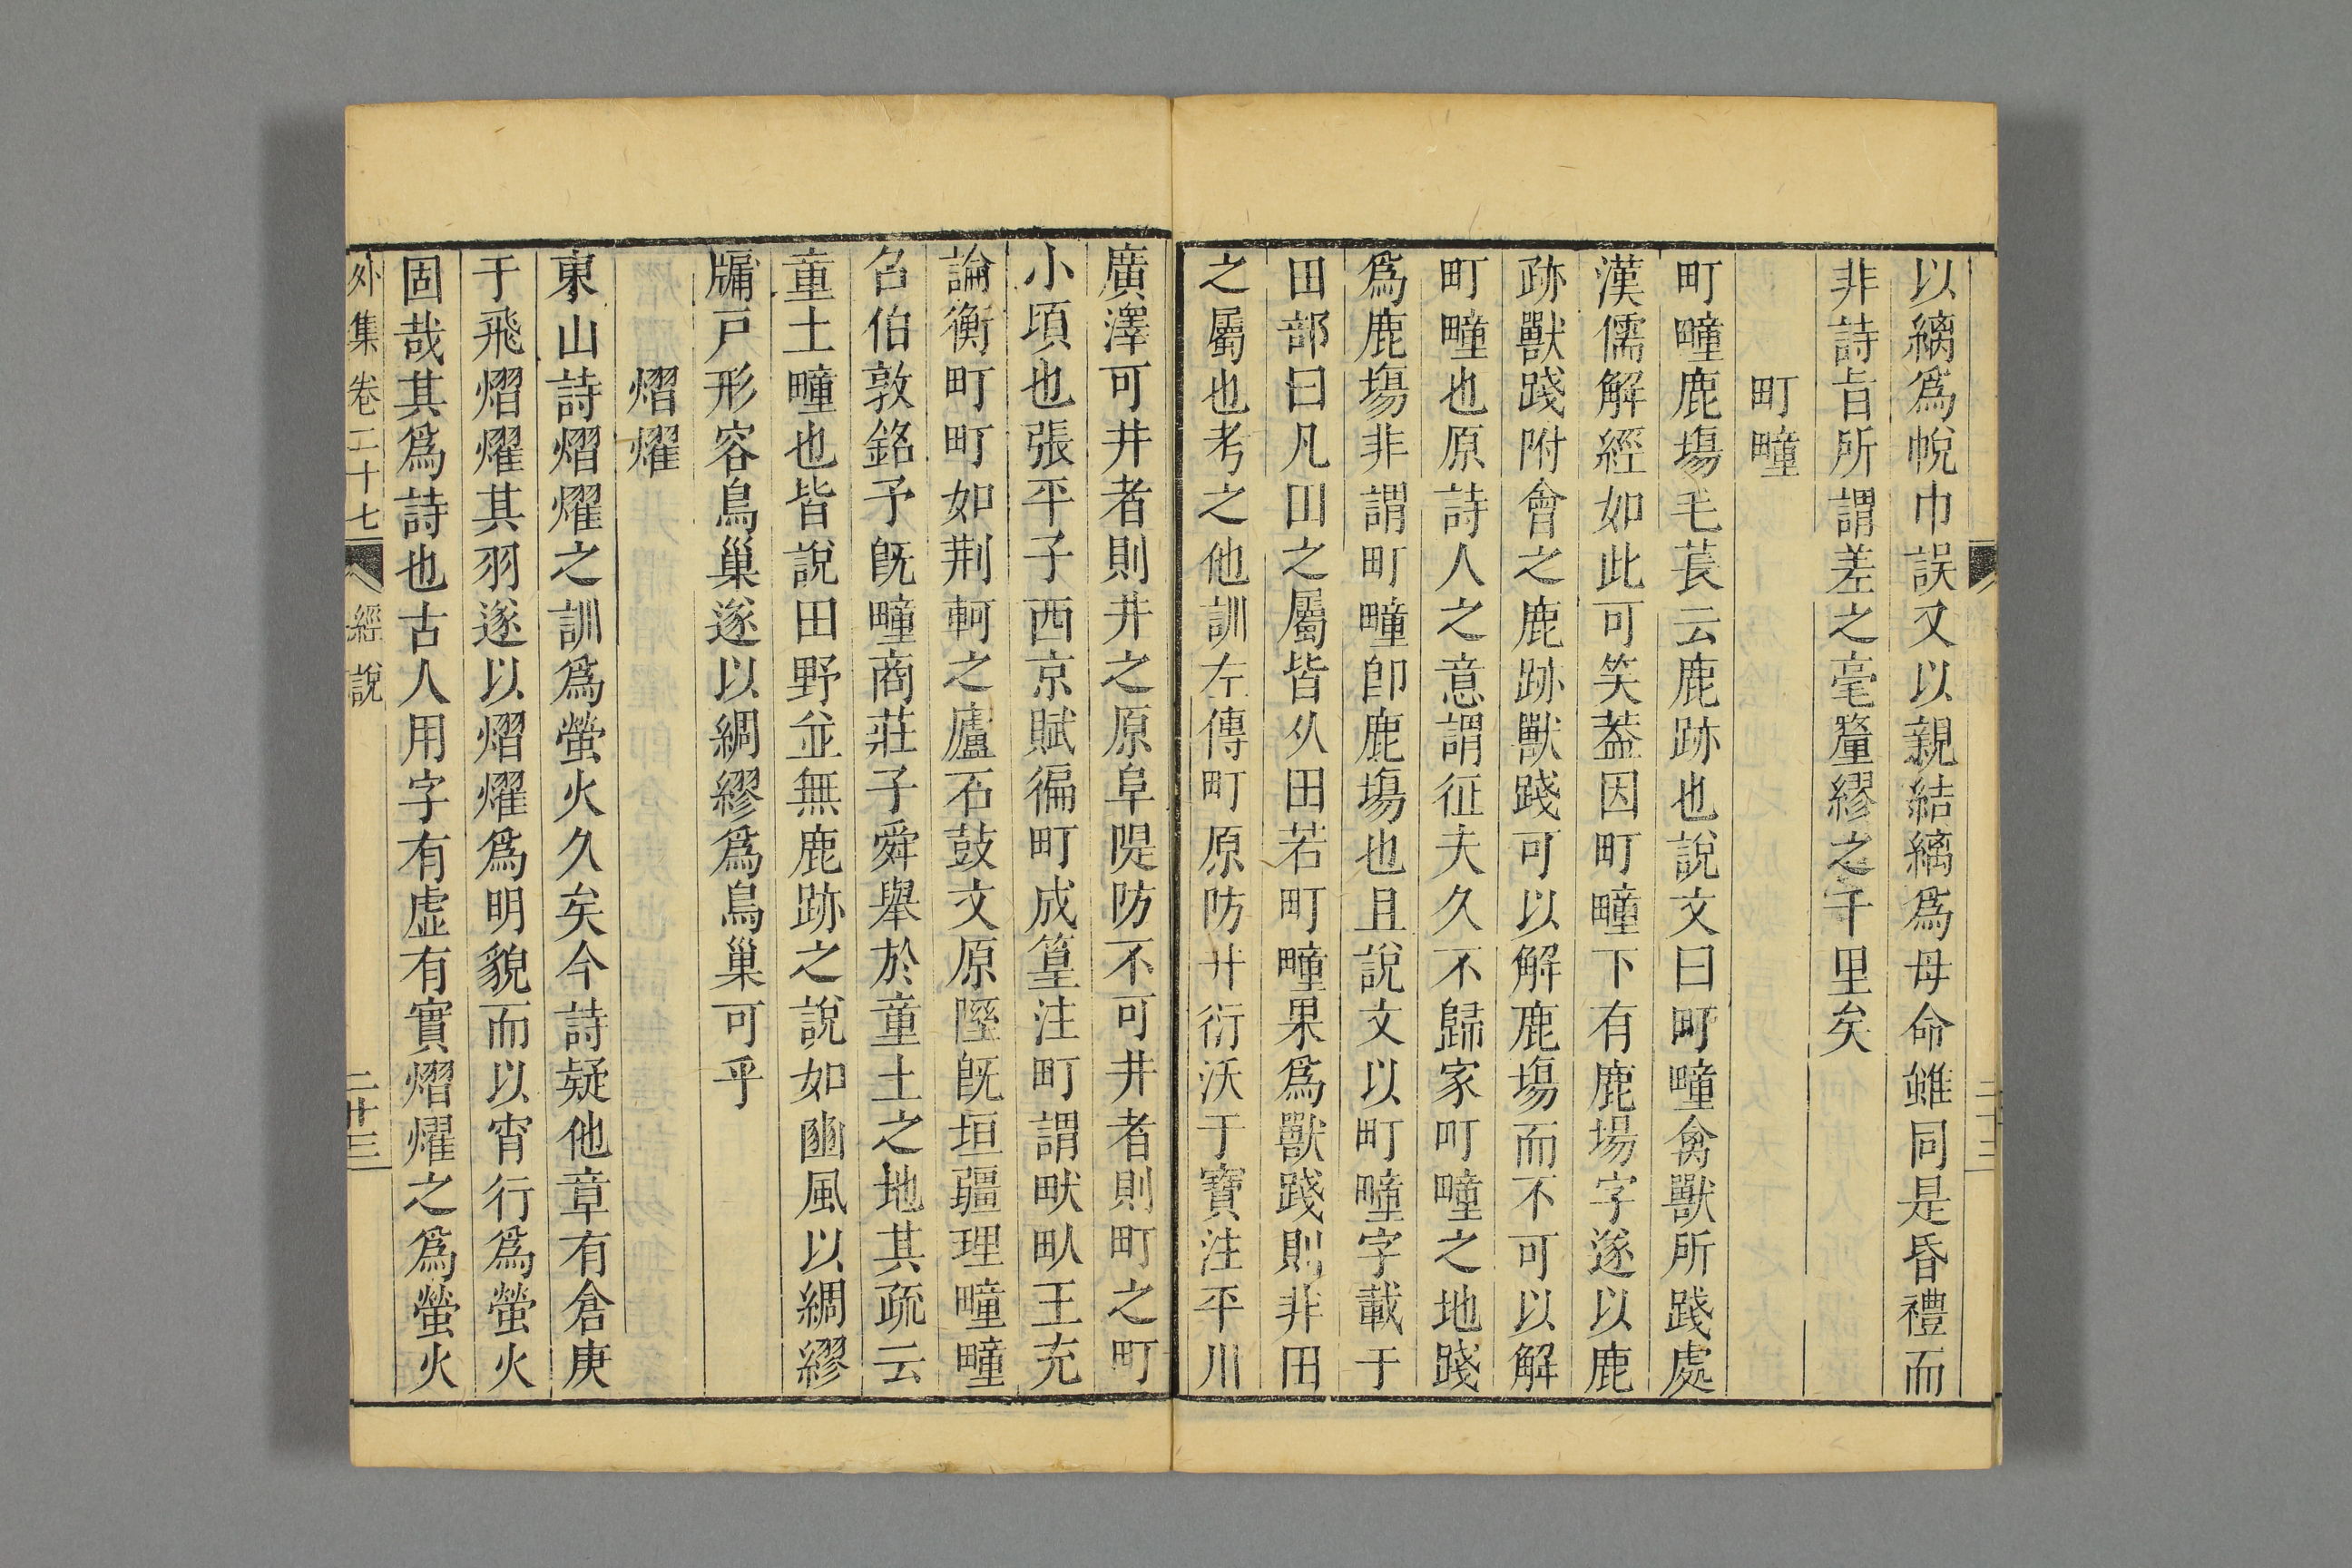 以縭爲帨巾誤又以親結縭爲母命雖同是昏禮而
非詩旨所謂差之毫釐繆之千里矣
町疃
町疃鹿塲毛萇云鹿跡也說文曰町疃禽獸所踐處
漢儒解經如此可笑葢因町疃下有鹿場字遂以鹿
跡獸踐附會之鹿跡獸踐可以解鹿塲而不可以解
町疃也原詩人之意謂征夫久不歸家町疃之地踐
爲鹿塲非謂町疃卽鹿塲也且說文以町疃字載于
田部曰凡田之屬皆从田若町疃果爲獸踐則非田
之屬也考之他訓左傳町原防井衍沃于寶注平川
廣澤可井者則井之原阜隄防不可井者則町之町
小頃也張平子西京賦徧町成篁注町謂畎畒王充
論衡町町如荆軻之廬石鼓文原隰旣垣疆理疃疃
召伯敦銘予旣疃商莊子舜舉於童土之地其疏云
童土疃也皆說田野並無鹿跡之說如豳風以綢繆
牖戸形容鳥巢遂以綢繆爲鳥巢可乎
熠燿
東山詩熠燿之訓爲螢火久矣今詩疑他章有倉庚
于飛熠燿其羽遂以熠燿爲明貌而以宵行爲螢火
固哉其爲詩也古人用字有虛有實熠燿之爲螢火
外集卷二十七 經說 二十三